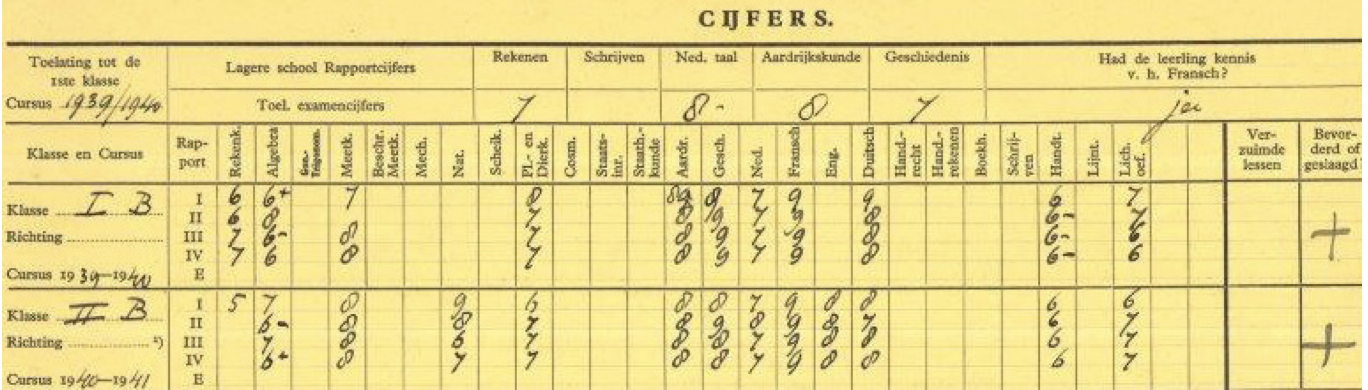 CIJFERS.
Toelating tot de 1ste klasse Lagere school Rapportcijfers Rekenen Schrijven Ned. taal Aardrijkskunde Geschiedenis Had de leerling kennis v. h. Fransch?
Cursus 1939/1940 Toel. examencijfers 7 8- 8 7 ja
Klasse en Cursus Rapport Rekenk. Algebra Gon.-Trigonom. Meetk. Beschr. Meetk. Mech. Nat. Scheik. Pl.- en Dierk. Cosm. Staats-inr. Staath.-kunde Aardr. Gesch. Ned. Fransch Eng. Duitsch Hand.-recht Hand.-rekenen Boekh. Schrij-ven Handt. Lijnt. Lich. oef. Ver-zuimde lessen Bevor-derd of geslaagd
Klasse I B I 6 6+ 7 8 9 7 9 9 6 7
II 6 8 7 8 9 7 9 8 6- 7
Richting III 7 6- 8 7 8 9 7 9 8 6- 6 +
IV 7 6 8 7 8 9 7 9 8 6- 6
Cursus 1939-1940 E
Klasse II B I 5 7 8 9 6 8 8 7 9 8 8 6 6
II 6- 8 8 7 8 9 7 9 8 7 6 7
Richting ²) III 7 8 6 7 8 8 7 9 8 8 6 7 +
IV 6+ 8 7 7 8 8 7 9 8 8 6 7
Cursus 1940-1941 E